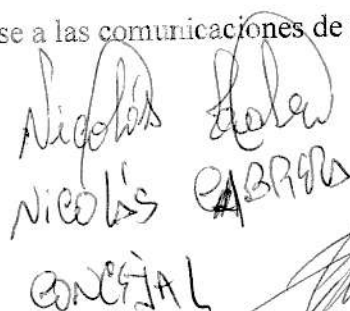 se a las comunicaciones de
Nicolás
NICOLÁS CABRERA
CONCEJAL